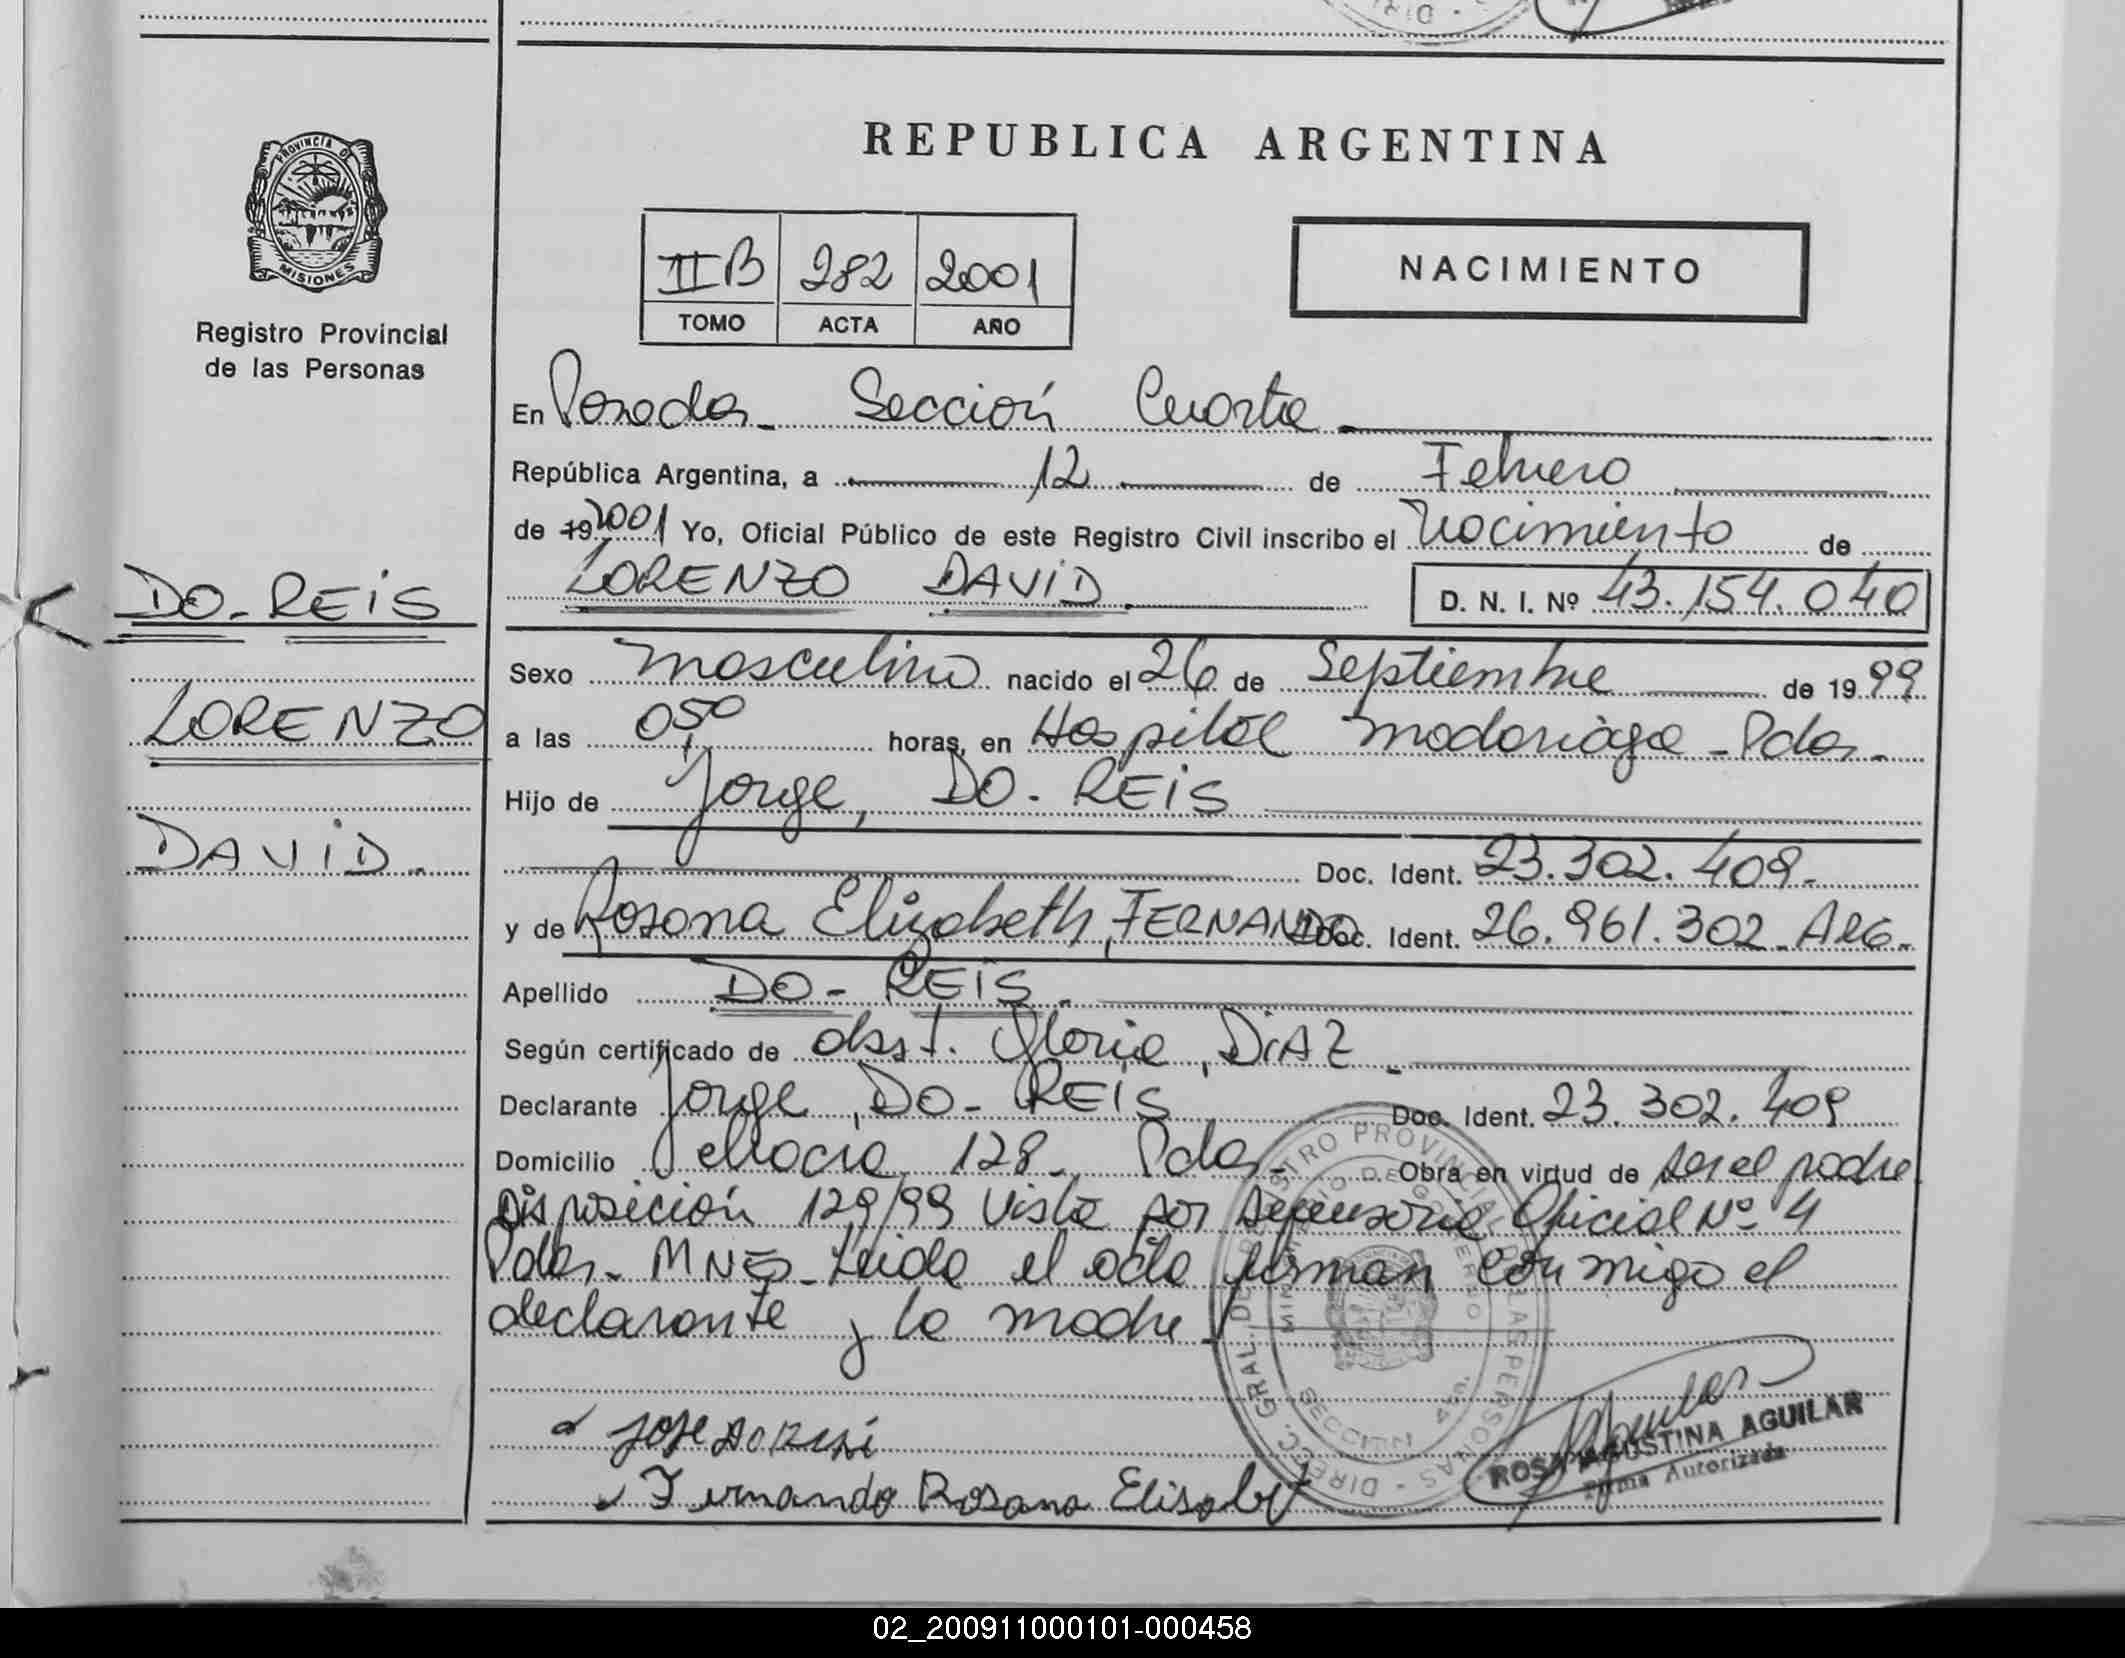 PROVINCIA DE
MISIONES
Registro Provincial
de las Personas
DO-REIS
LORENZO
DAVID.
REPUBLICA ARGENTINA
IIB 282 2001
TOMO ACTA AÑO
NACIMIENTO
En Posadas - Sección Cuarta
República Argentina, a 12 de Febrero
de 19 2001 Yo, Oficial Público de este Registro Civil inscribo el Nacimiento de
LORENZO DAVID D. N. I. Nº 43.154.040
Sexo Masculino nacido el 26 de Septiembre de 1999
a las 05⁵⁰ horas, en Hospital Madariaga - Pdas.
Hijo de Jorge, DO-REIS
Doc. Ident. 23.302.409.
y de Rosana Elizabeth, FERNANDO Doc. Ident. 26.961.302 - ARG.
Apellido DO-REIS.
Según certificado de obst. Gloria, DIAZ
Declarante Jorge, DO-REIS Doc. Ident. 23.302.409
Domicilio 128- Pdas- Obra en virtud de ser el padre
Disposición 129/99 Vista por Defensoria Oficial Nº 4
Pdas- MNES- Leida el acta firman conmigo el
declarante y la madre
Fernando Rosana Elisabet
ROSA AGUSTINA AGUILAR
Firma Autorizada
DIRECC. GRAL. DE REGISTRO PROVINCIAL DE LAS PERSONAS
MINISTERIO DE GOBIERNO
SECCION
02_200911000101-000458